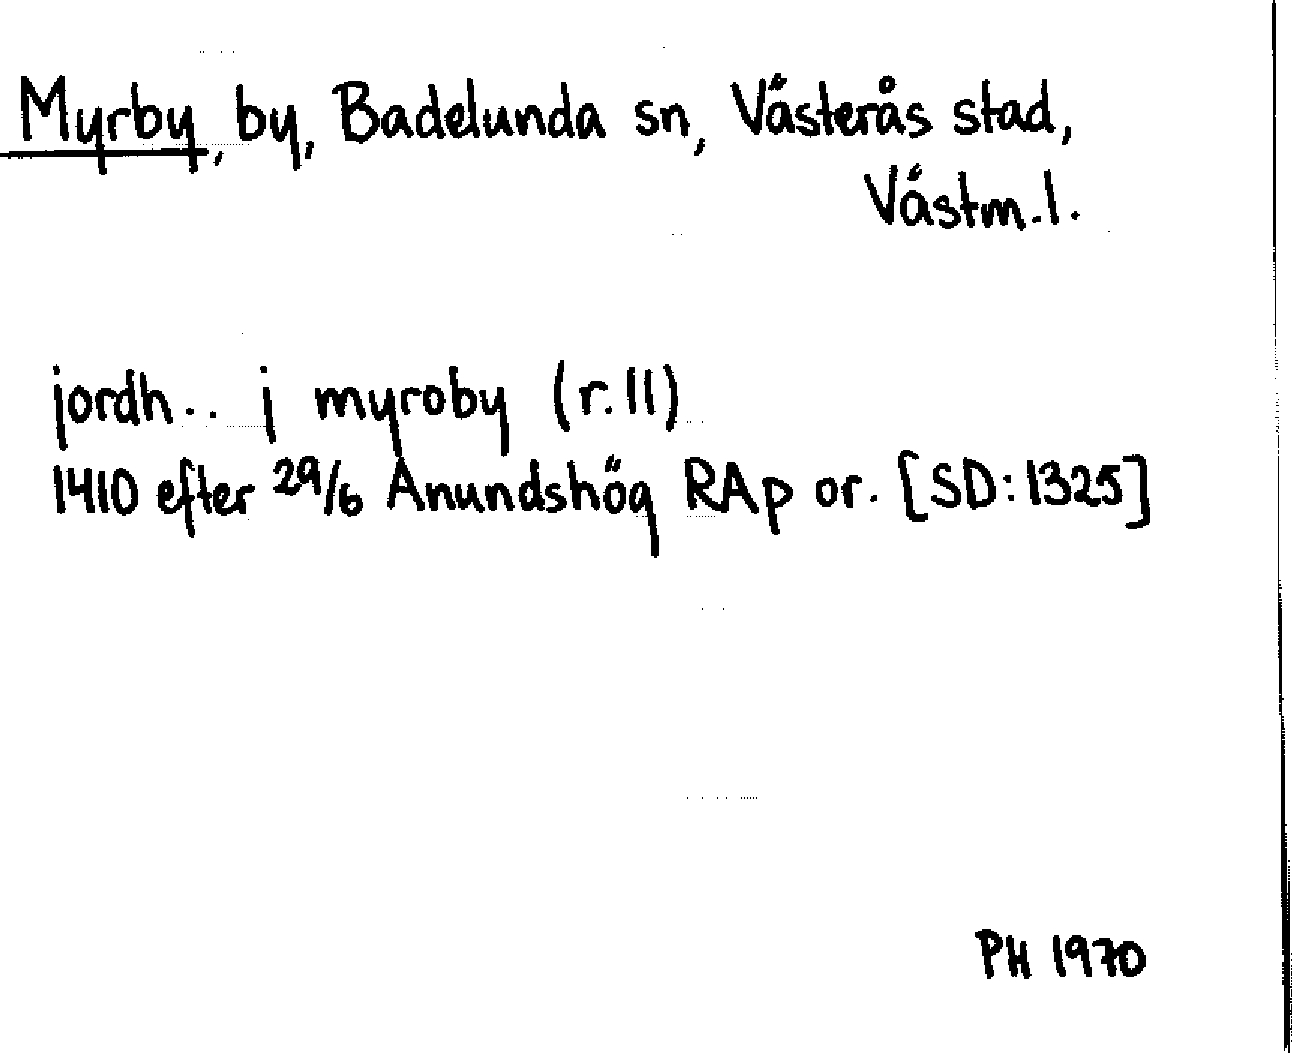 Myrby, by, Badelunda sn, Västerås stad,
Västm.l.
jordh.. j myroby (r.11)
1410 efter 29/6 Anundshög RAp or. [SD:1325]
PH 1970